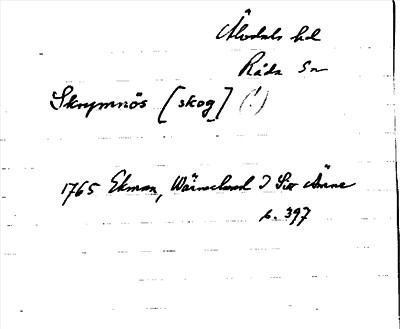 Älvdals hd
Råda sn
Skrymnös [skog] (!)
1765 Ekman, Wärmeland I Sitt Ämne
s. 397